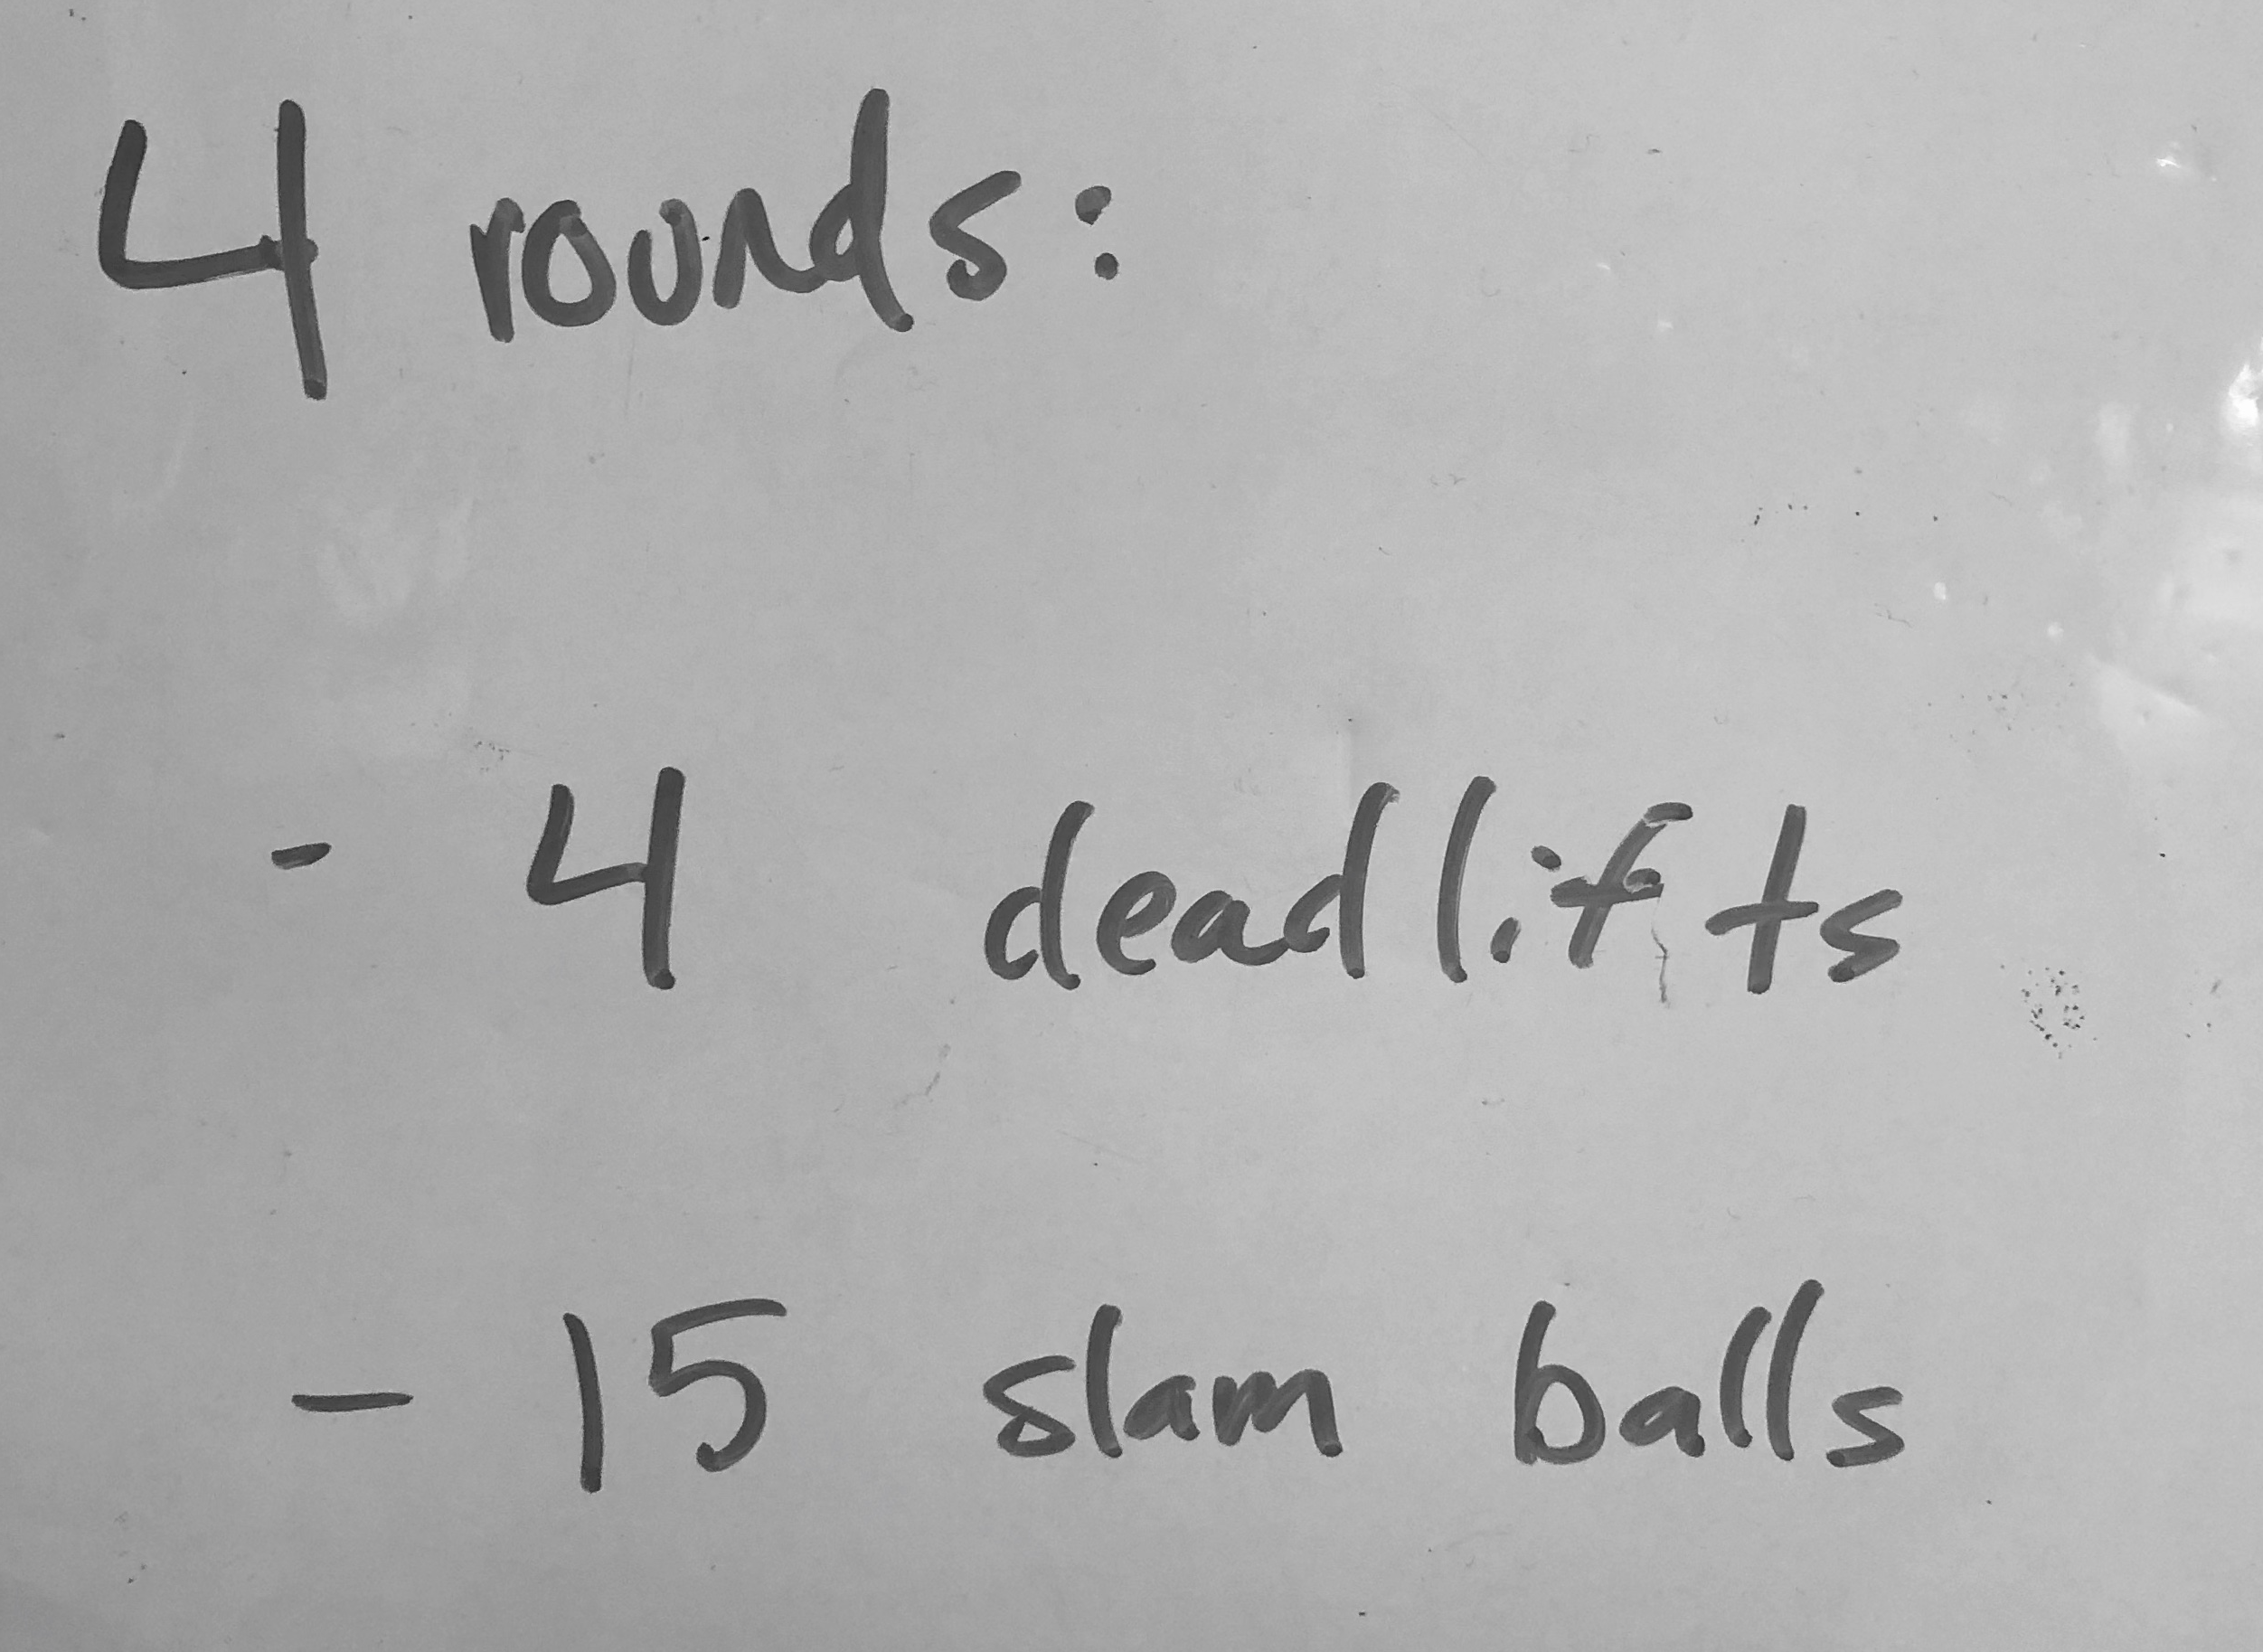 4 rounds:
- 4 deadlifts
- 15 slam balls